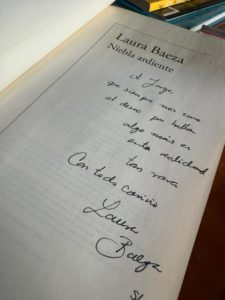 Laura Baeza
Niebla ardiente
A Jorge,
que siempre nos una
el deseo por hallar
algo más en
esta realidad
tan rara
Con todo cariño
Laura
Baeza